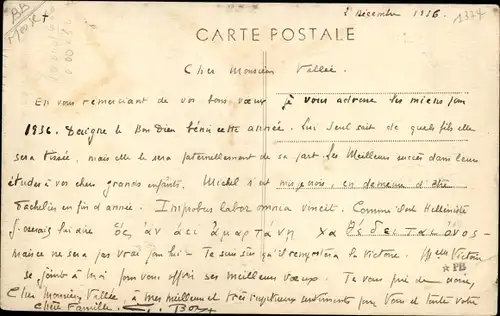 2 Décembre 1936
1374
CARTE POSTALE
Cher Monsieur Vallée.
En vous remerciant de vos bons vœux je vous adresse les miens pour
1936. Daigne le Bon Dieu bénir cette année. Lui seul sait de quels fils elle
sera tissée, mais elle le sera paternellement de sa part. Les Meilleurs succès dans leurs
études à vos chers grands enfants. Michel s'est mis, je crois, en demeure d'être
bachelier en fin d'année. Improbus labor omnia vincit. Comme il est Helléniste
j'oserais lui dire ὅς ἂν ἀεὶ ἁμαρτάνῃ
ne sera pas vrai pour lui. Je suis sûr qu'il remportera la Victoire. Melle Victoire
se joint à moi pour vous offrir ses meilleurs vœux. Je vous prie de croire,
Cher Monsieur Vallée, à mes meilleurs et très respectueux sentiments pour Vous et toute votre
chère Famille.
PB